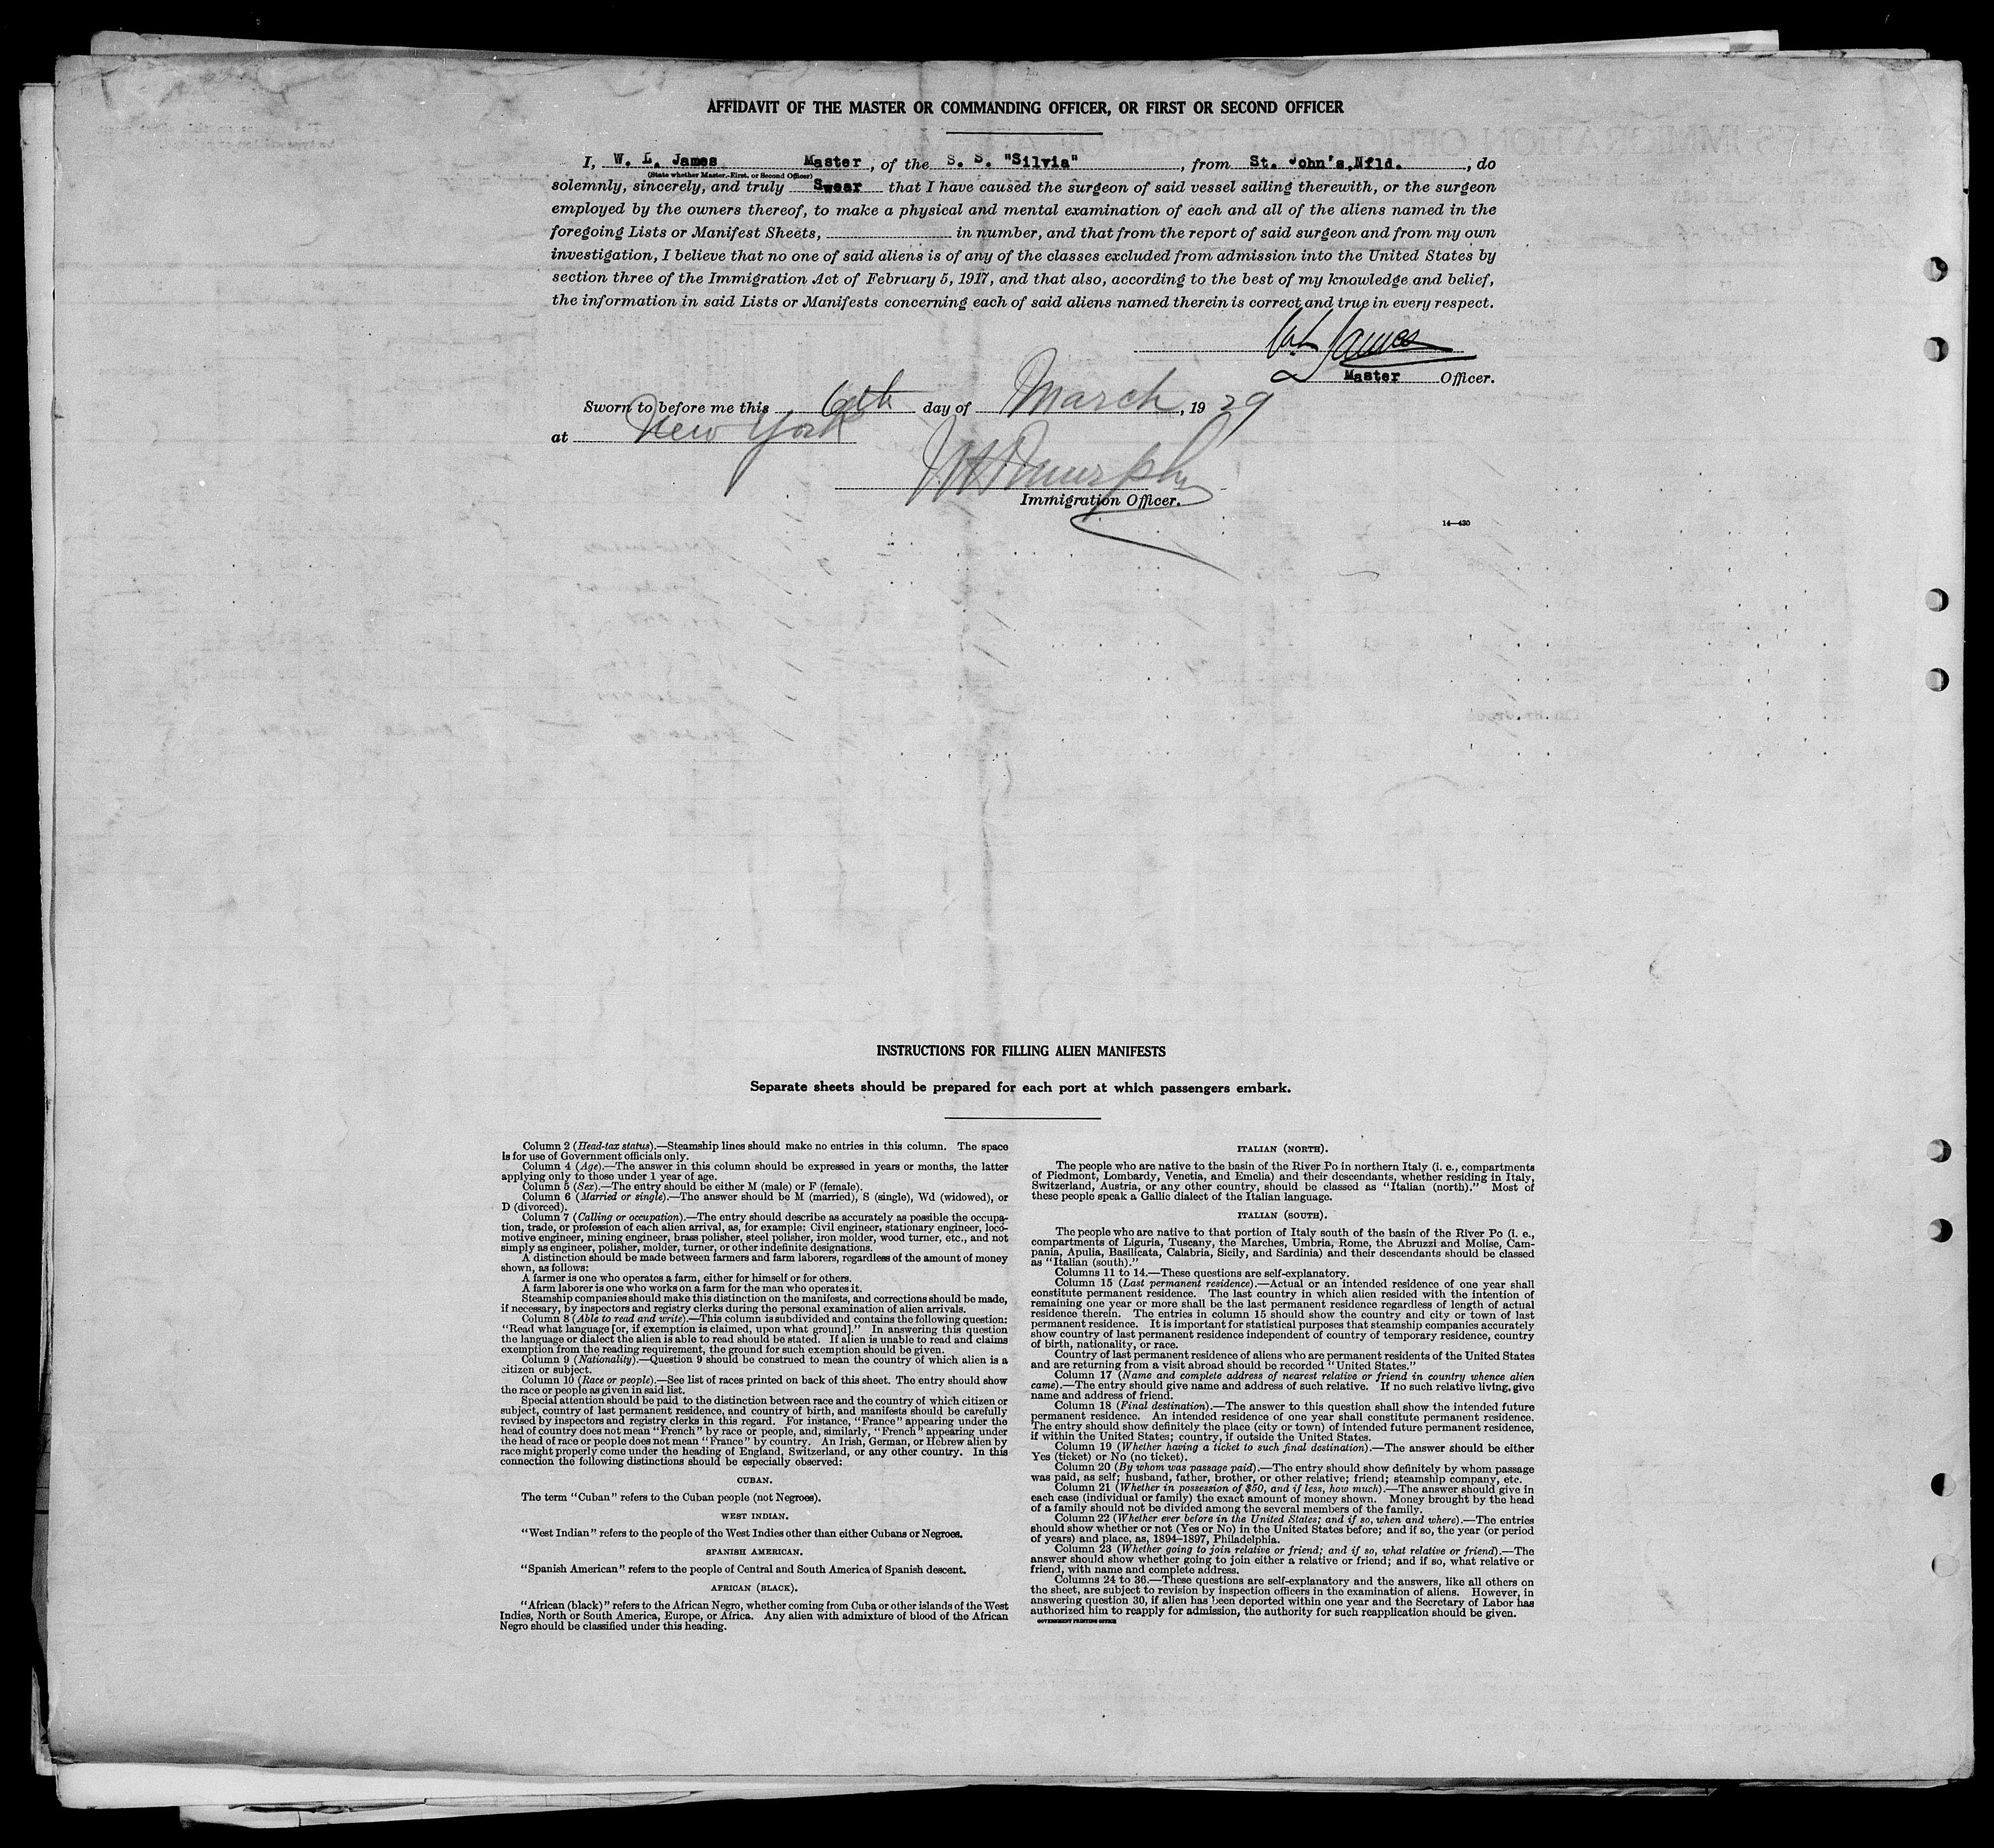 AFFIDAVIT OF THE MASTER OR COMMANDING OFFICER, OR FIRST OR SECOND OFFICER
I, W. L. James Master, of the S. S. "Silvia", from St. John's, Nfld., do
(State whether Master, First, or Second Officer)
solemnly, sincerely, and truly Swear that I have caused the surgeon of said vessel sailing therewith, or the surgeon
employed by the owners thereof, to make a physical and mental examination of each and all of the aliens named in the
foregoing Lists or Manifest Sheets, in number, and that from the report of said surgeon and from my own
investigation, I believe that no one of said aliens is of any of the classes excluded from admission into the United States by
section three of the Immigration Act of February 5, 1917, and that also, according to the best of my knowledge and belief,
the information in said Lists or Manifests concerning each of said aliens named therein is correct and true in every respect.
W L James
Master Officer.
Sworn to before me this 6th day of March, 1929
at New York
Murphy
Immigration Officer.
14—430
INSTRUCTIONS FOR FILLING ALIEN MANIFESTS
Separate sheets should be prepared for each port at which passengers embark.
Column 2 (Head-tax status).—Steamship lines should make no entries in this column. The space
is for use of Government officials only.
Column 4 (Age).—The answer in this column should be expressed in years or months, the latter
applying only to those under 1 year of age.
Column 5 (Sex).—The entry should be either M (male) or F (female).
Column 6 (Married or single).—The answer should be M (married), S (single), Wd (widowed), or
D (divorced).
Column 7 (Calling or occupation).—The entry should describe as accurately as possible the occupa-
tion, trade, or profession of each alien arrival, as, for example: Civil engineer, stationary engineer, loco-
motive engineer, mining engineer, brass polisher, steel polisher, iron molder, wood turner, etc., and not
simply as engineer, polisher, molder, turner, or other indefinite designations.
A distinction should be made between farmers and farm laborers, regardless of the amount of money
shown, as follows:
A farmer is one who operates a farm, either for himself or for others.
A farm laborer is one who works on a farm for the man who operates it.
Steamship companies should make this distinction on the manifests, and corrections should be made,
if necessary, by inspectors and registry clerks during the personal examination of alien arrivals.
Column 8 (Able to read and write).—This column is subdivided and contains the following question:
"Read what language [or, if exemption is claimed, upon what ground]." In answering this question
the language or dialect the alien is able to read should be stated. If alien is unable to read and claims
exemption from the reading requirement, the ground for such exemption should be given.
Column 9 (Nationality).—Question 9 should be construed to mean the country of which alien is a
citizen or subject.
Column 10 (Race or people).—See list of races printed on back of this sheet. The entry should show
the race or people as given in said list.
Special attention should be paid to the distinction between race and the country of which citizen or
subject, country of last permanent residence, and country of birth, and manifests should be carefully
revised by inspectors and registry clerks in this regard. For instance, "France" appearing under the
head of country does not mean "French" by race or people, and, similarly, "French" appearing under
the head of race or people does not mean "France" by country. An Irish, German, or Hebrew alien by
race might properly come under the heading of England, Switzerland, or any other country. In this
connection the following distinctions should be especially observed:
CUBAN.
The term "Cuban" refers to the Cuban people (not Negroes).
WEST INDIAN.
"West Indian" refers to the people of the West Indies other than either Cubans or Negroes.
SPANISH AMERICAN.
"Spanish American" refers to the people of Central and South America of Spanish descent.
AFRICAN (BLACK).
"African (black)" refers to the African Negro, whether coming from Cuba or other islands of the West
Indies, North or South America, Europe, or Africa. Any alien with admixture of blood of the African
Negro should be classified under this heading.
ITALIAN (NORTH).
The people who are native to the basin of the River Po in northern Italy (i. e., compartments
of Piedmont, Lombardy, Venetia, and Emelia) and their descendants, whether residing in Italy,
Switzerland, Austria, or any other country, should be classed as "Italian (north)." Most of
these people speak a Gallic dialect of the Italian language.
ITALIAN (SOUTH).
The people who are native to that portion of Italy south of the basin of the River Po (i. e.,
compartments of Liguria, Tuscany, the Marches, Umbria, Rome, the Abruzzi and Molise, Cam-
pania, Apulia, Basilicata, Calabria, Sicily, and Sardinia) and their descendants should be classed
as "Italian (south)."
Columns 11 to 14.—These questions are self-explanatory.
Column 15 (Last permanent residence).—Actual or an intended residence of one year shall
constitute permanent residence. The last country in which alien resided with the intention of
remaining one year or more shall be the last permanent residence regardless of length of actual
residence therein. The entries in column 15 should show the country and city or town of last
permanent residence. It is important for statistical purposes that steamship companies accurately
show country of last permanent residence independent of country of temporary residence, country
of birth, nationality, or race.
Country of last permanent residence of aliens who are permanent residents of the United States
and are returning from a visit abroad should be recorded "United States."
Column 17 (Name and complete address of nearest relative or friend in country whence alien
came).—The entry should give name and address of such relative. If no such relative living, give
name and address of friend.
Column 18 (Final destination).—The answer to this question shall show the intended future
permanent residence. An intended residence of one year shall constitute permanent residence.
The entry should show definitely the place (city or town) of intended future permanent residence,
if within the United States; country, if outside the United States.
Column 19 (Whether having a ticket to such final destination).—The answer should be either
Yes (ticket) or No (no ticket).
Column 20 (By whom was passage paid).—The entry should show definitely by whom passage
was paid, as self; husband, father, brother, or other relative; friend; steamship company, etc.
Column 21 (Whether in possession of $50, and if less, how much).—The answer should give in
each case (individual or family) the exact amount of money shown. Money brought by the head
of a family should not be divided among the several members of the family.
Column 22 (Whether ever before in the United States; and if so, when and where).—The entries
should show whether or not (Yes or No) in the United States before; and if so, the year (or period
of years) and place, as, 1894–1897, Philadelphia.
Column 23 (Whether going to join relative or friend; and if so, what relative or friend).—The
answer should show whether going to join either a relative or friend; and if so, what relative or
friend, with name and complete address.
Columns 24 to 36.—These questions are self-explanatory and the answers, like all others on
the sheet, are subject to revision by inspection officers in the examination of aliens. However, in
answering question 30, if alien has been deported within one year and the Secretary of Labor has
authorized him to reapply for admission, the authority for such reapplication should be given.
GOVERNMENT PRINTING OFFICE